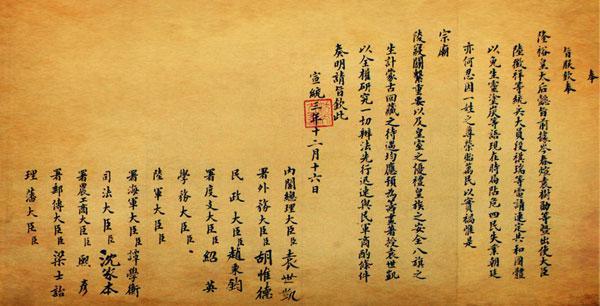 奉
旨朕欽奉
隆裕皇太后懿旨前據岑春煊袁樹勳等暨出使大臣
陸徵祥等統兵大員段祺瑞等電請速定共和國體
以免生靈塗炭等語現在時局阽危四民失業朝廷
亦何忍因一姓之尊榮貽萬民以實禍惟是
宗廟
陵寢關繫重要以及皇室之優禮皇族之安全八旗之
生計蒙古回藏之待遇均應預為籌畫著授袁世凱
以全權研究一切辦法先行迅速與民軍商酌條件
奏明請旨欽此
宣統三年十二月十六日
內閣總理大臣臣袁世凱
署外務大臣臣胡惟德
民政大臣臣趙秉鈞
署度支大臣臣紹英
學務大臣臣
陸軍大臣臣
署海軍大臣臣譚學衡
司法大臣臣沈家本
署農工商大臣臣熙彥
署郵傳大臣臣梁士詒
理藩大臣臣